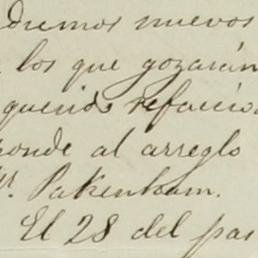 dremos nuevos
los que gozarán
querido refacció
onde al arreglo
Pakenham.
El 28 del pas